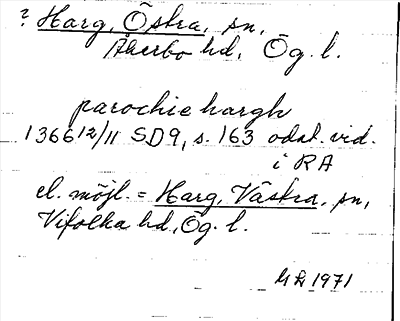 ? Harg, Östra, sn,
Åkerbo hd, Ög. l.
parochie hargh
1366 12/11 SD9, s. 163 odat. vid.
i RA
el. möjl. = Harg, Västra, sn,
Vifolka hd, Ög. l.
1971